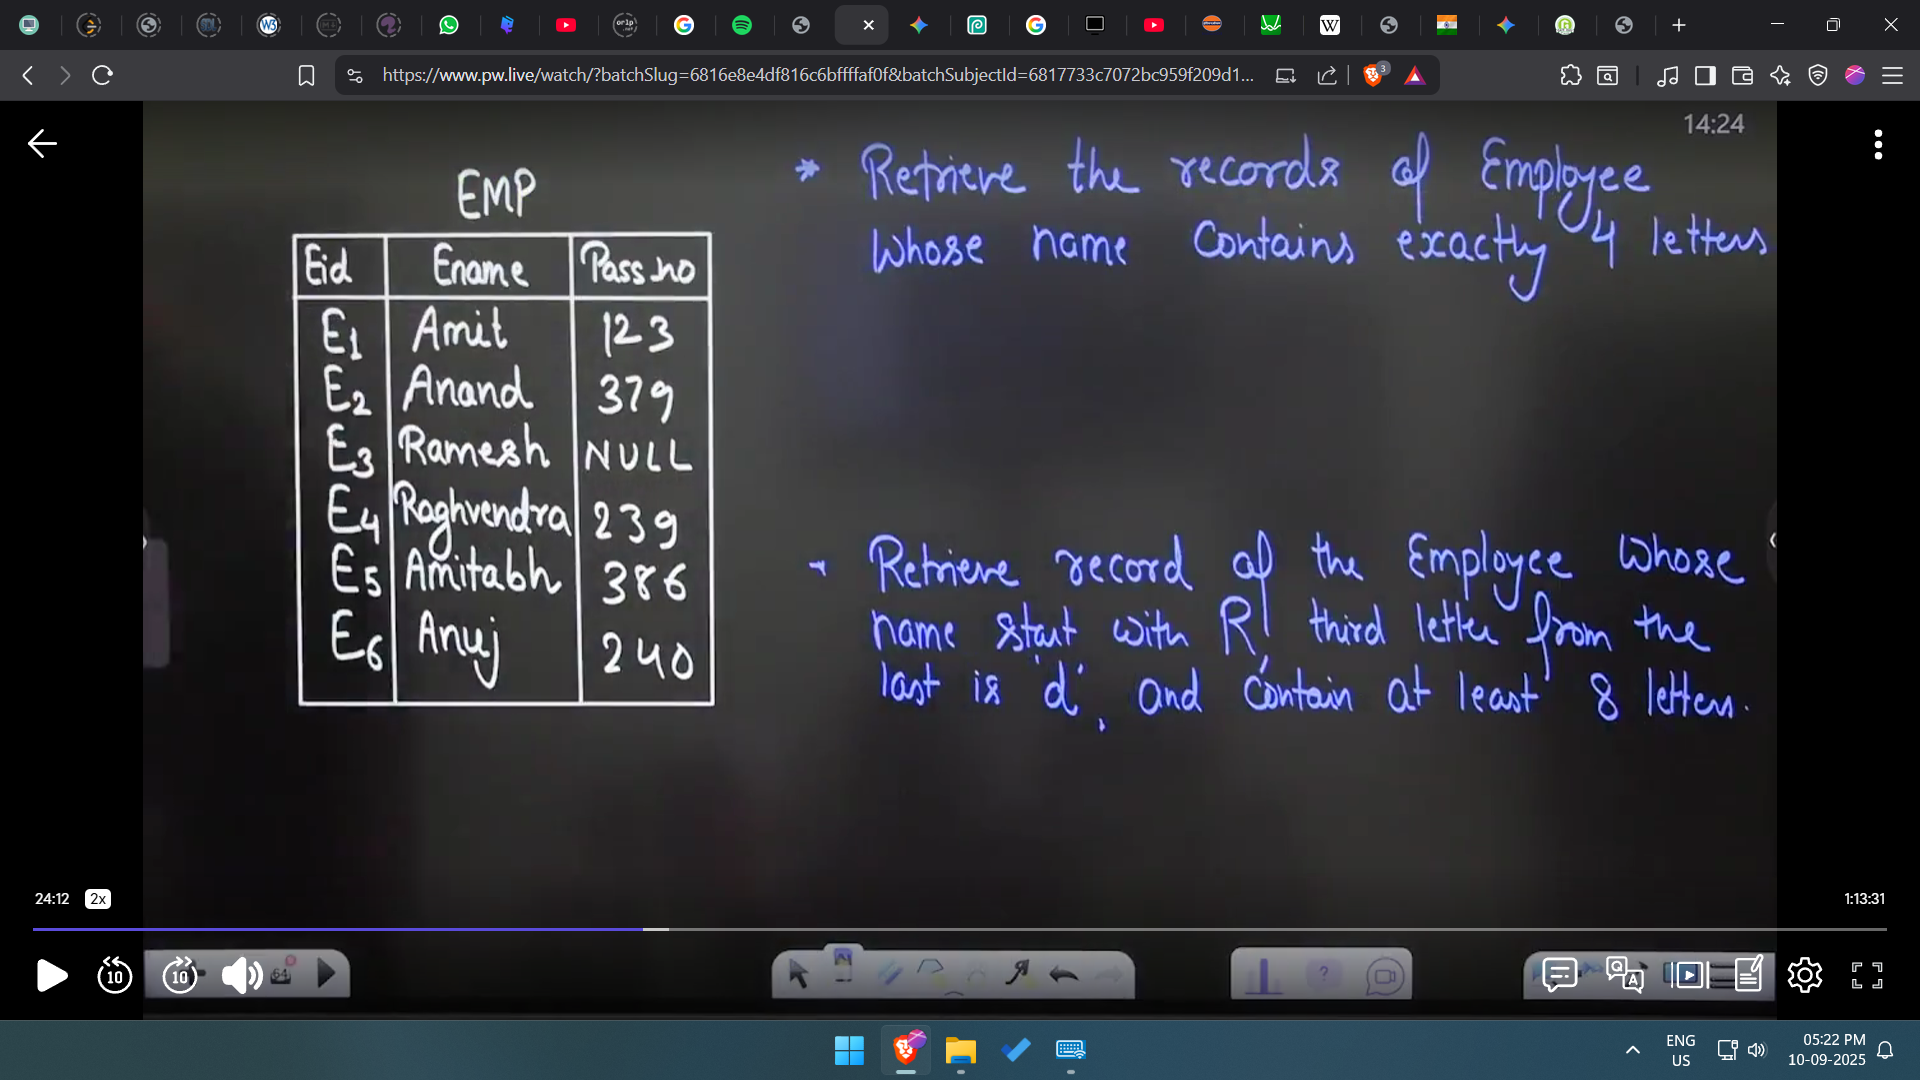 https://www.pw.live/watch/?batchSlug=6816e8e4df816c6bffffaf0f&batchSubjectId=6817733c7072bc959f209d1...
3
14:24
EMP
Eid Ename Pass_no
E1 Amit 123
E2 Anand 379
E3 Ramesh NULL
E4 Raghvendra 239
E5 Amitabh 386
E6 Anuj 240
* Retrieve the records of Employee
whose name contains exactly 4 letters
Retrieve record of the Employee whose
name start with 'R', third letter from the
last is 'd', and contain at least 8 letters.
24:12 2x
1:13:31
10 10 64
ENG
US
05:22 PM
10-09-2025